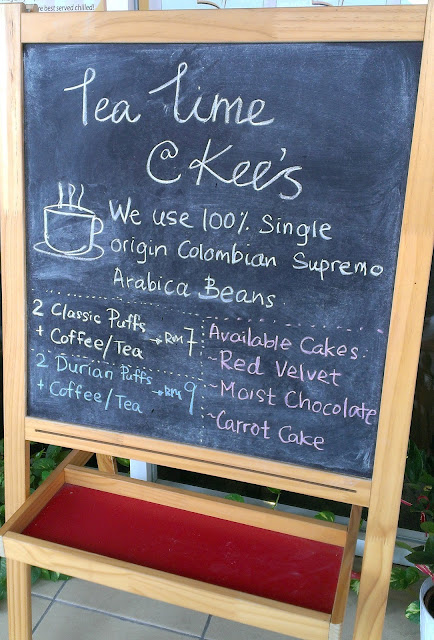 e best served chilled!
Tea Time
@ Kee's
We use 100% Single
origin Colombian Supremo
Arabica Beans
2 Classic Puffs
+ Coffee/Tea → RM 7
2 Durian Puffs
+ Coffee/Tea → RM 9
Available Cakes:
~Red Velvet
~Moist Chocolate
~Carrot Cake